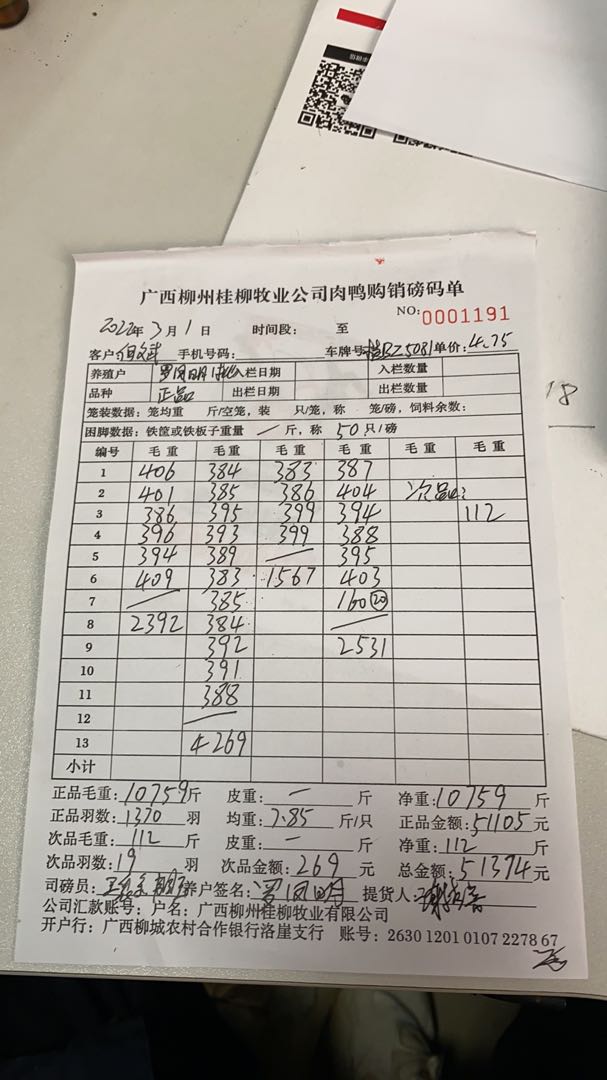 广西柳州桂柳牧业公司肉鸭购销磅码单
NO:0001191
2022年3月1日 时间段: 至
客户: 手机号码: 车牌号: BZ5081 单价:4.75
养殖户 入栏日期 入栏数量
品种 正品 出栏日期 出栏数量
笼装数据: 笼均重 斤/空笼，装 只/笼，称 笼/磅，饲料余数:
困脚数据: 铁筐或铁板子重量 一 斤，称 50只/磅
编号 毛重 毛重 毛重 毛重 毛重 毛重
1 406 384 383 387
2 401 385 386 404 次品:
3 386 395 399 394 112
4 396 393 399 388
5 394 389 395
6 409 383 1567 403
7 385 160 20
8 2392 384
9 392 2531
10 391
11 388
12
13 4269
小计
正品毛重:10759斤 皮重:一斤 净重:10759斤
正品羽数:1370羽 均重:7.85斤/只 正品金额:51105元
次品毛重:112斤 皮重:一斤 净重:112斤
次品羽数:19羽 次品金额:269元 总金额:51374元
司磅员: 养户签名:罗凤明 提货人:
公司汇款账号: 户名: 广西柳州桂柳牧业有限公司
开户行: 广西柳城农村合作银行洛崖支行 账号: 2630 1201 0107 2278 67
18